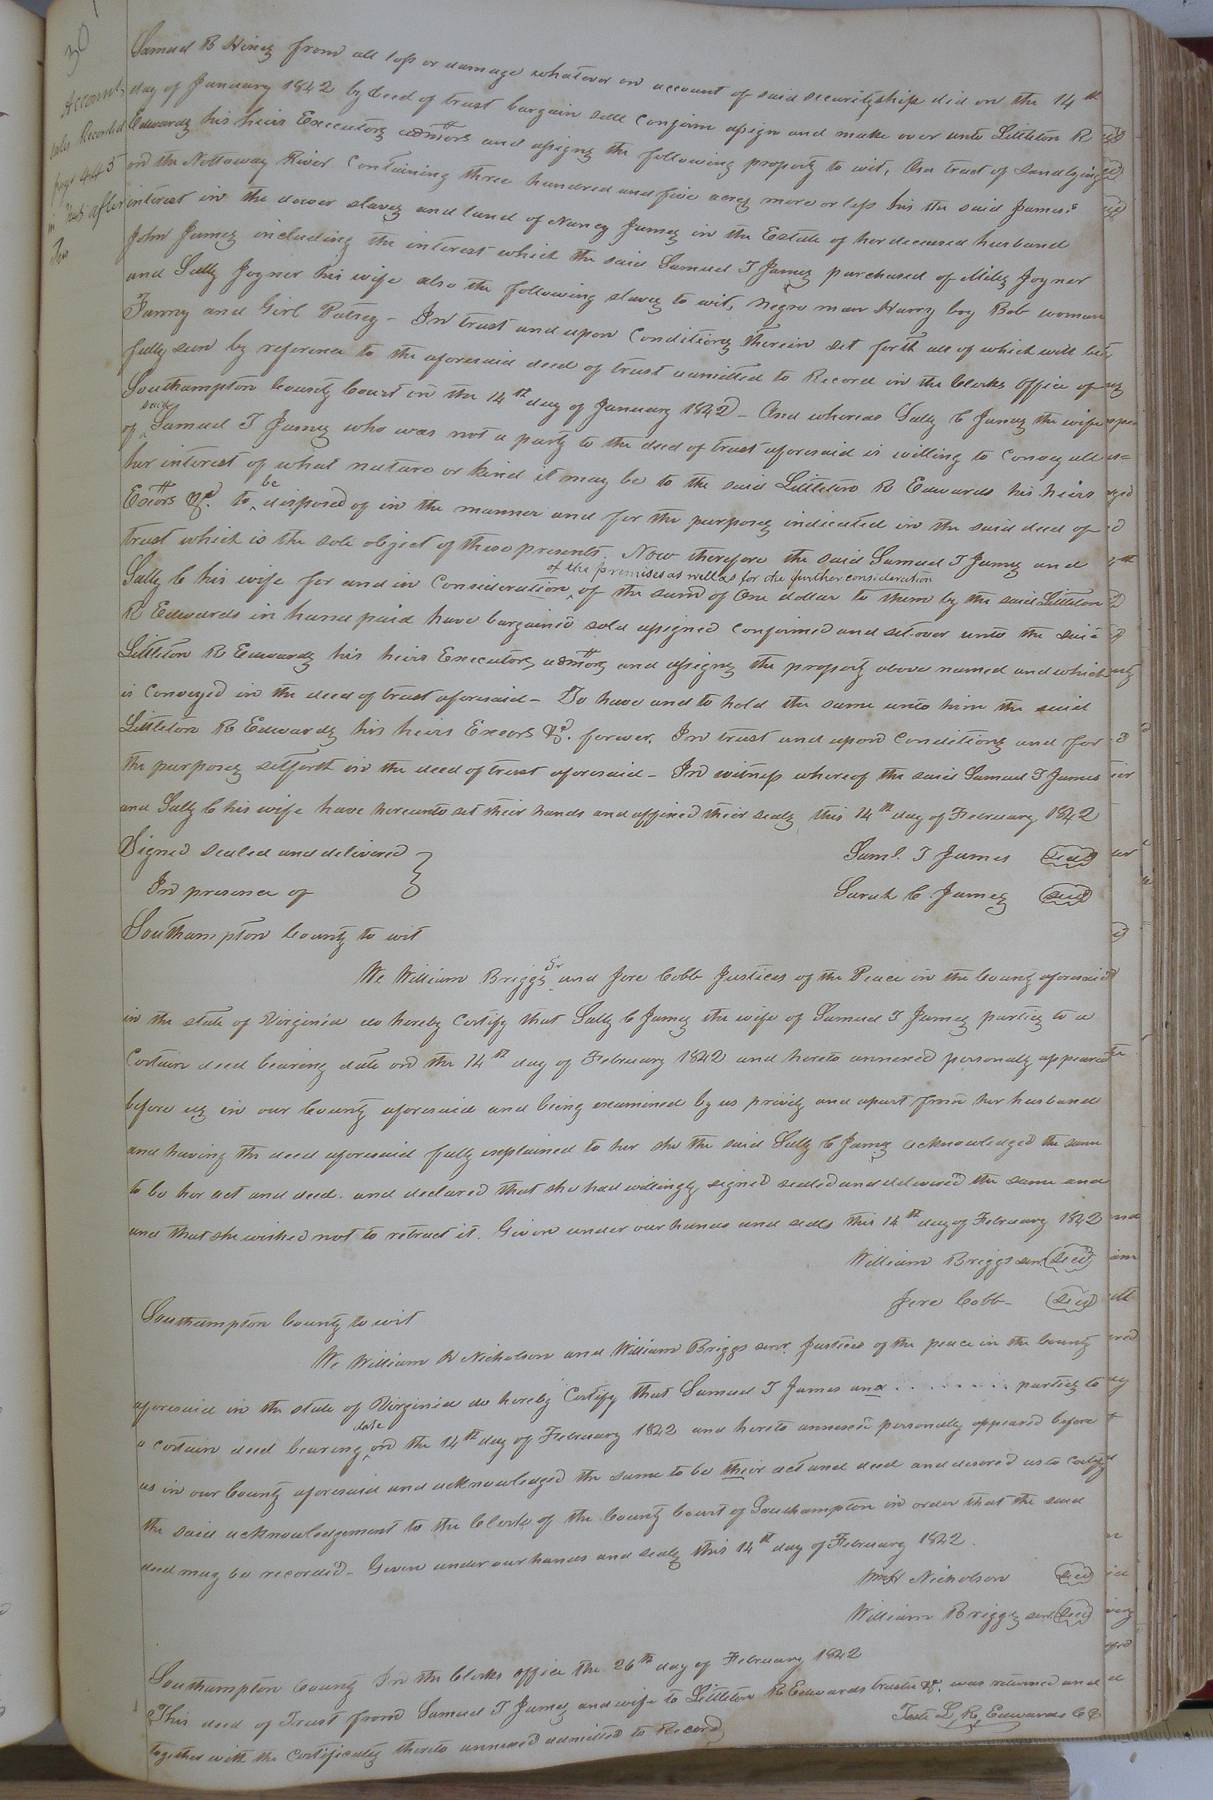 30
Account
sales Recorded
page 445
in this after
Samuel B Hines from all loss or damage whatever on account of said securityship did on the 14th
day of January 1842 by deed of trust bargain sell confirm assign and make over unto Littleton R
Edwards his heirs Executors admors and assigns the following property to wit, One tract of land lying
on the Nottoway River containing three hundred and five acres more or less his the said James's
interest in the dower slaves and land of Nancy James in the Estate of her deceased husband
John James including the interest which the said Samuel T James purchased of Mills Joyner
and Sally Joyner his wife also the following slaves to wit, Negro man Harry boy Bob woman
Fanny and Girl Patsey - In trust and upon Conditions therein set forth all of which will be
fully seen by reference to the aforesaid deed of trust admitted to Record in the Clerks Office of
Southampton County Court on the 14th day of January 1842 - And whereas Sally C James the wife
of said Samuel T James who was not a party to the deed of trust aforesaid is willing to convey all
her interest of what nature or kind it may be to the said Littleton R Edwards his heirs
Exors &c. to be disposed of in the manner and for the purposes indicated in the said deed of
trust which is the sole object of these presents. Now therefore the said Samuel T James and
Sally C his wife for and in consideration of the premises as well as for the further consideration of the sum of One dollar to them by the said Littleton
R Edwards in hand paid have bargained sold assigned confirmed and set over unto the said
Littleton R Edwards his heirs Executors admors and assigns the property above named and which
is conveyed in the deed of trust aforesaid - To have and to hold the same unto him the said
Littleton R Edwards his heirs Exors &c. forever. In trust and upon Conditions and for
the purposes set forth in the deed of trust aforesaid - In witness whereof the said Samuel T James
and Sally C his wife have hereunto set their hands and affixed their seals this 14th day of February 1842
Signed sealed and delivered Saml. T James seal
In presence of Sarah C James seal
Southampton County to wit
We William Briggs Sr. and Jere Cobb Justices of the Peace in the County aforesaid
in the state of Virginia do hereby certify that Sally C James the wife of Samuel T James parties to a
certain deed bearing date on the 14th day of February 1842 and hereto annexed personally appeared
before us in our County aforesaid and being examined by us privily and apart from her husband
and having the deed aforesaid fully explained to her she the said Sally C James acknowledged the same
to be her act and deed. and declared that she had willingly signed sealed and delivered the same and
and that she wished not to retract it. Given under our hands and seals this 14th day of February 1842
William Briggs senr. seal
Jere Cobb - seal
Southampton County to wit
We William H Nicholson and William Briggs senr. Justices of the peace in the County
aforesaid in the state of Virginia do hereby Certify that Samuel T James and . . . . . . . . parties to
a certain deed bearing date on the 14th day of February 1842 and hereto annexed personally appeared before
us in our County aforesaid and acknowledged the same to be their act and deed and desired us to certify
the said acknowledgement to the Clerk of the County Court of Southampton in order that the said
deed may be recorded - Given under our hands and seals this 14th day of February 1842.
Wm H Nicholson seal
William Briggs senr. seal
Southampton County In the Clerks office the 26th day of February 1842
This deed of Trust from Samuel T James and wife to Littleton R Edwards trustee &c. was returned and
together with the certificates thereto annexed admitted to Record
Teste L. R. Edwards CC